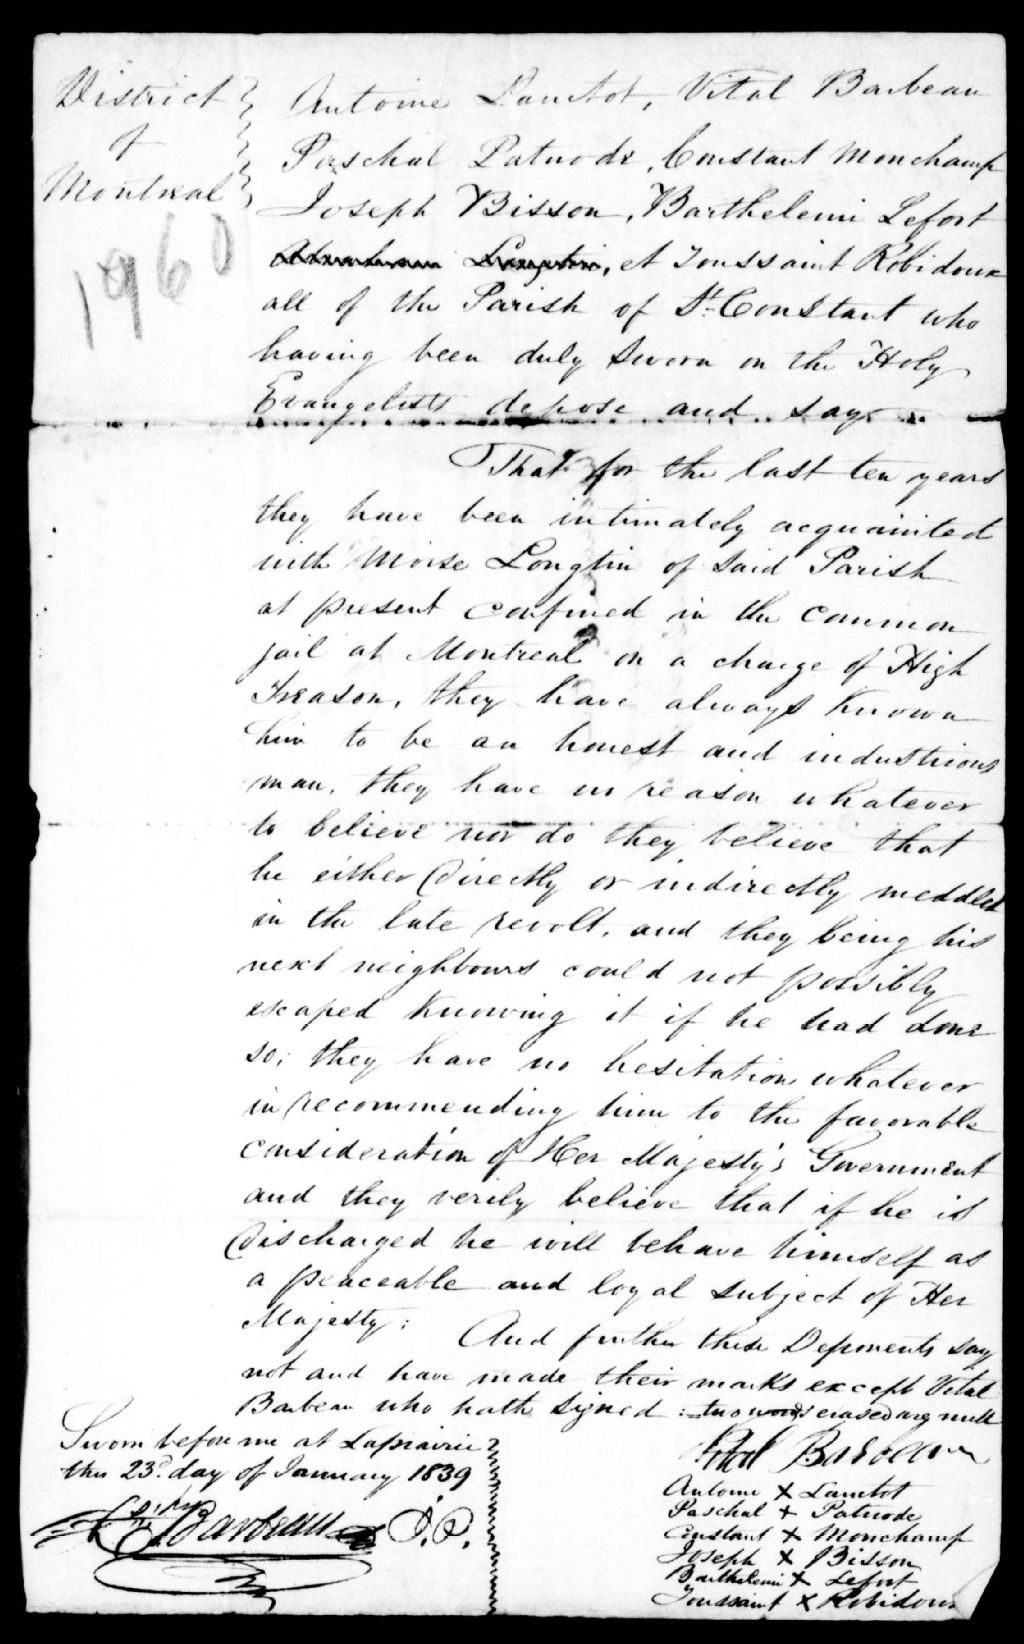 District
of
Montreal
1960
Antoine Lanctot, Vital Barbeau
Paschal Patnode, Constant Monchamp
Joseph Bisson, Barthelemi Lefort
Longtin, et Toussaint Robidoux
all of the Parish of St. Constant who
having been duly sworn on the Holy
Evangelists depose and say
That for the last ten years
they have been intimately acquainted
with Moise Longtin of said Parish
at present confined in the common
jail at Montreal on a charge of High
Treason, they have always known
him to be an honest and industrious
man, they have no reason whatever
to believe nor do they believe that
he either directly or indirectly meddled
in the late revolt, and they being his
next neighbours could not possibly
escaped knowing it if he had done
so; they have no hesitation whatever
in recommending him to the favorable
consideration of Her Majesty's Government
and they verily believe that if he is
discharged he will behave himself as
a peaceable and loyal subject of Her
Majesty; And further these Deponents say
not and have made their marks except Vital
Barbeau who hath signed: two words erased are null
Sworn before me at Laprairie
this 23d. day of January 1839
Barbeau J.P.
Vital Barbeau
Antoine X Lanctot
Paschal X Patnode
Constant X Monchamp
Joseph X Bisson
Barthelemi X Lefort
Toussaint X Robidoux